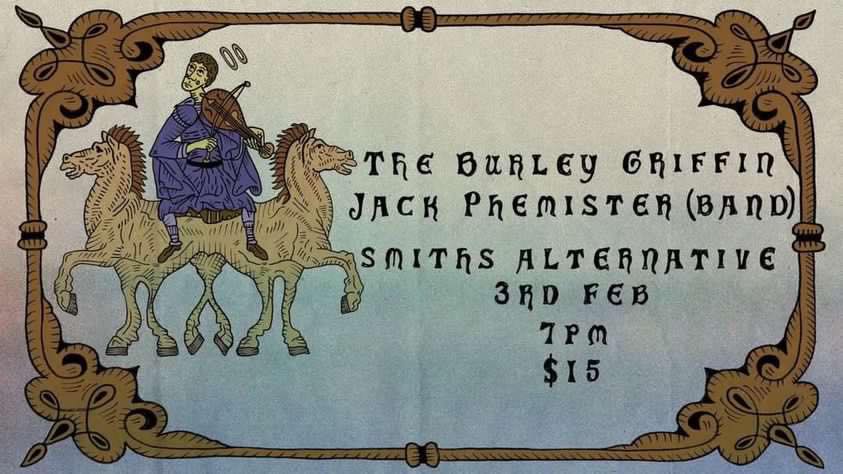 The Burley Griffin
Jack Phemister (band)
Smiths Alternative
3rd Feb
7pm
$15